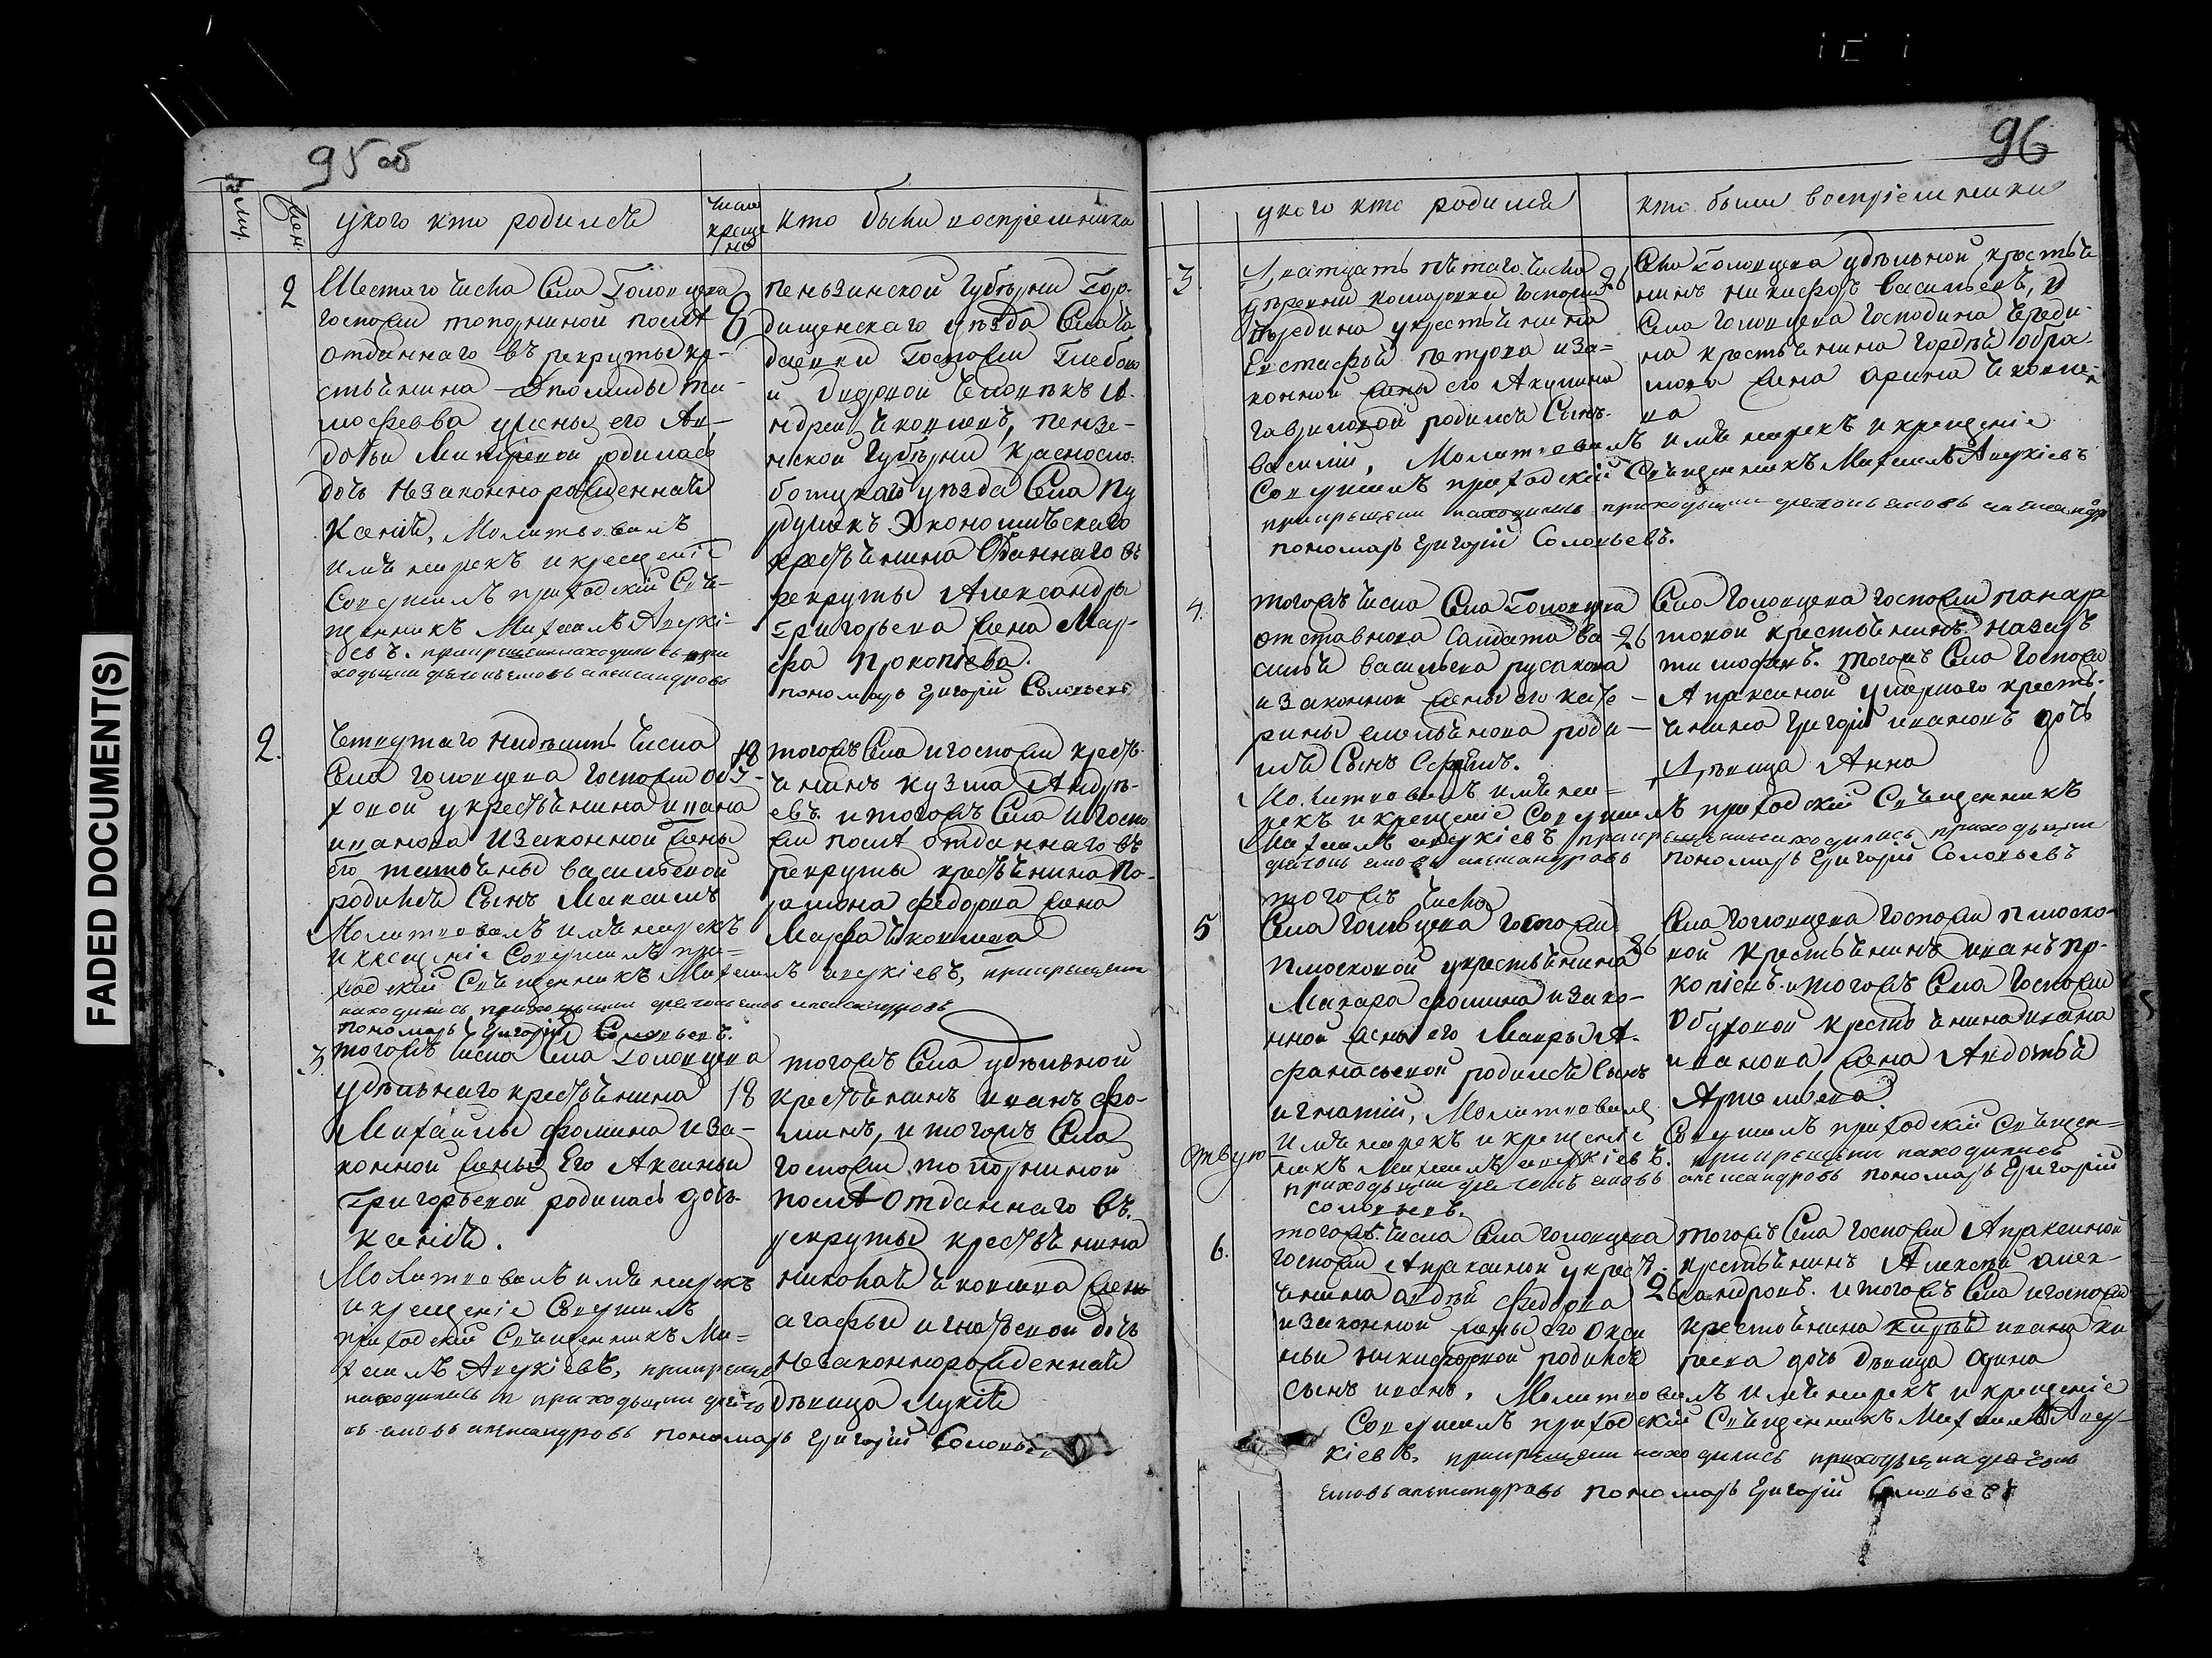 FADED DOCUMENT(S)
95 об
Му.
Жен.
у кого кто родилсѧ
число
креще
ния
кто были воспрiемники
2
Шестаго числа Села Головщена
8
госпожи топорниной послѣ
отданнаго въ рекруты кре-
стьянина Ти-
мофеева у жены его Ав-
дотьи родилась
дочь Незаконнорожденная
Ксенiя, Молитвовалъ
имя нарекъ и крещенiе
Совершилъ приходскiй Свя-
щенникъ Михаилъ Аверкi-
евъ. при крещенiи находились при
ходящии дьячокъ емовъ александровъ
пеньзинской Губернiи Горо-
дищенскаго уѣзда Села Ча
даевки Госпожи Глебово
и Человѣкъ А-
ндрей Яковлевъ, пензе-
нской Губернiи Красносло-
ботцкаго уѣзда Села Пу
Экономическаго
крестьянина Отданнаго въ
рекруты Александры
Григорьева жена Мар-
фа Прокопiева.
пономарь Григорiй Соловьевъ
2.
числа
18
Села головщена госпожи
у крестьянина ивана
иванова И Законной жены
его татьяны васильевой
родилсѧ Сынъ Максимъ
Молитвовалъ имя нарекъ
и крещенiе Совершилъ при-
ходскiй Священникъ Михаилъ аверкiевъ, при крещенiи
находились приходящии дьячокъ емовъ александровъ
пономарь Григорiй Соловьевъ.
тогожъ Села и госпожи кресть-
янинъ кузма Андре-
евъ и тогожъ Села И госпо
жи послѣ отданнаго въ
рекруты крестьянина
федорова жена
Марфа Яковлева
3
тогожъ числа Села Головщена
удѣльнаго крестьянина
18
Михаилы фомина и За-
конной жены Его Аксиньи
Григорьевой родилась дочь
ксенiя.
Молитвовалъ имя нарекъ
и крещенiе Совершилъ
приходскiй Священникъ Ми-
хаилъ Аверкiевъ, при крещенiи
находились приходящии дьячо
къ емовъ александровъ пономарь Григорiй Соловье
тогожъ Села удѣльной
крестьянинъ иванъ фо-
минъ, и тогожъ Села
госпожи топорниной
послѣ Отданнаго въ
рекруты крестьянина
николая яковлева жены
агафьи игнатьевой дочь
Незаконнорожденная
дѣвица Лукiя
96
у кого кто родился
кто были воспрiемники
3.
Дватцать пятаго числа
26
деревни комаровки Господина
Бередина у крестьянина
Евстафья петрова и За-
конной жены его Акулины
гавриловой родилсѧ Сынъ
василiй, Молитвовалъ имя нарекъ и крещенiе
Совершилъ приходскiй Священникъ Михаилъ Аверкiевъ
при крещенiи находились приходящии дьячокъ емовъ александро
пономарь Григорiй Соловьевъ.
Села Головщена удѣльной крестья
нинъ никифоръ васильевъ, И
Села головщена Господина Береди-
на крестьянина гордѣя
жена Арина яковле-
ва
4.
тогожъ числа Села Головщена
26
отставнова Салдата ва-
силья васильева русакова
и Законной жены его кате-
рины емельянова роди-
лсѧ Сынъ Ефремъ.
Молитвовалъ имя на-
рекъ и крещенiе Совершилъ приходскiй Священникъ
Михаилъ аверкiевъ при крещенiи находились приходящии
дьячокъ емовъ александровъ пономарь Григорiй Соловьевъ
Села головщена госпожи
крестьянинъ назаръ
тимофеевъ. тогожъ Села Госпожи
Апраксиной умершаго кресть-
янина Григорiя ивановъ дочь
Дѣвица Анна
5
тогожъ числа
Села головщена госпожи
26
плосковой у крестьянина
Макара фомина и зако-
нной жены его Мавры А-
фанасьевой родилсѧ Сынъ
игнатiй, Молитвовалъ
имя нарекъ и крещенiе Совершилъ приходскiй Священ-
никъ Михаилъ аверкiевъ. при крещенiи находились
приходящии дьячокъ емовъ александровъ пономарь Григорiй
Соловьевъ.
Села головщена госпожи плоско-
вой крестьянинъ иванъ про-
копiевъ. и тогожъ Села Госпожи
Обуховой крестьянина ивана
иванова жена Авдотья
Артемьева
6.
тогожъ числа Села головщена
26
госпожи Апраксиной у крест-
янина федорова
и Законной жены его Окси
ньи никифоровой родилсѧ
сынъ иванъ. Молитвовалъ имя нарекъ и крещенiе
Совершилъ приходскiй Священникъ Михаилъ Авер-
кiевъ, при крещенiи находились приходящии дьячокъ
емовъ александровъ пономарь Григорiй Соловьевъ
тогожъ Села госпожи Апраксиной
крестьянинъ Алексѣй алек-
сандровъ. и тогожъ Села и госпожи
крестьянина ивана ки
рѣева дочь дѣвица Арина